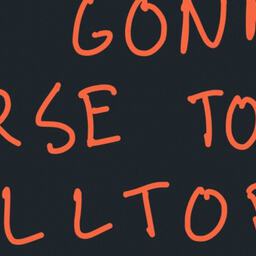 GON
RSE TO
LLTO